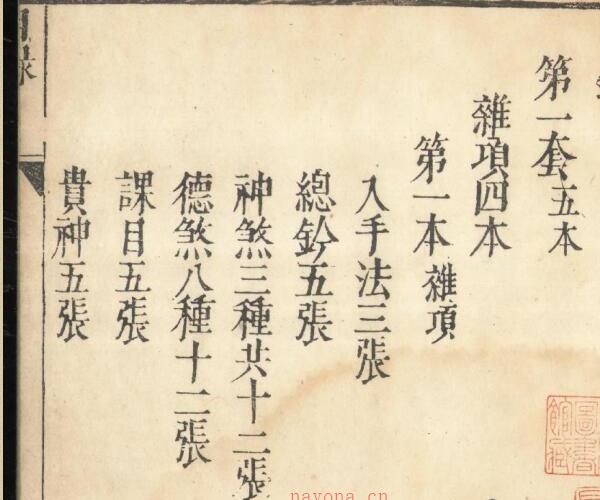 第一套 五本
雜項四本
第一本 雜項
入手法三張
總鈐五張
神煞三種共十二張
德煞八種十二張
課目五張
貴神五張
目錄
nayona.cn